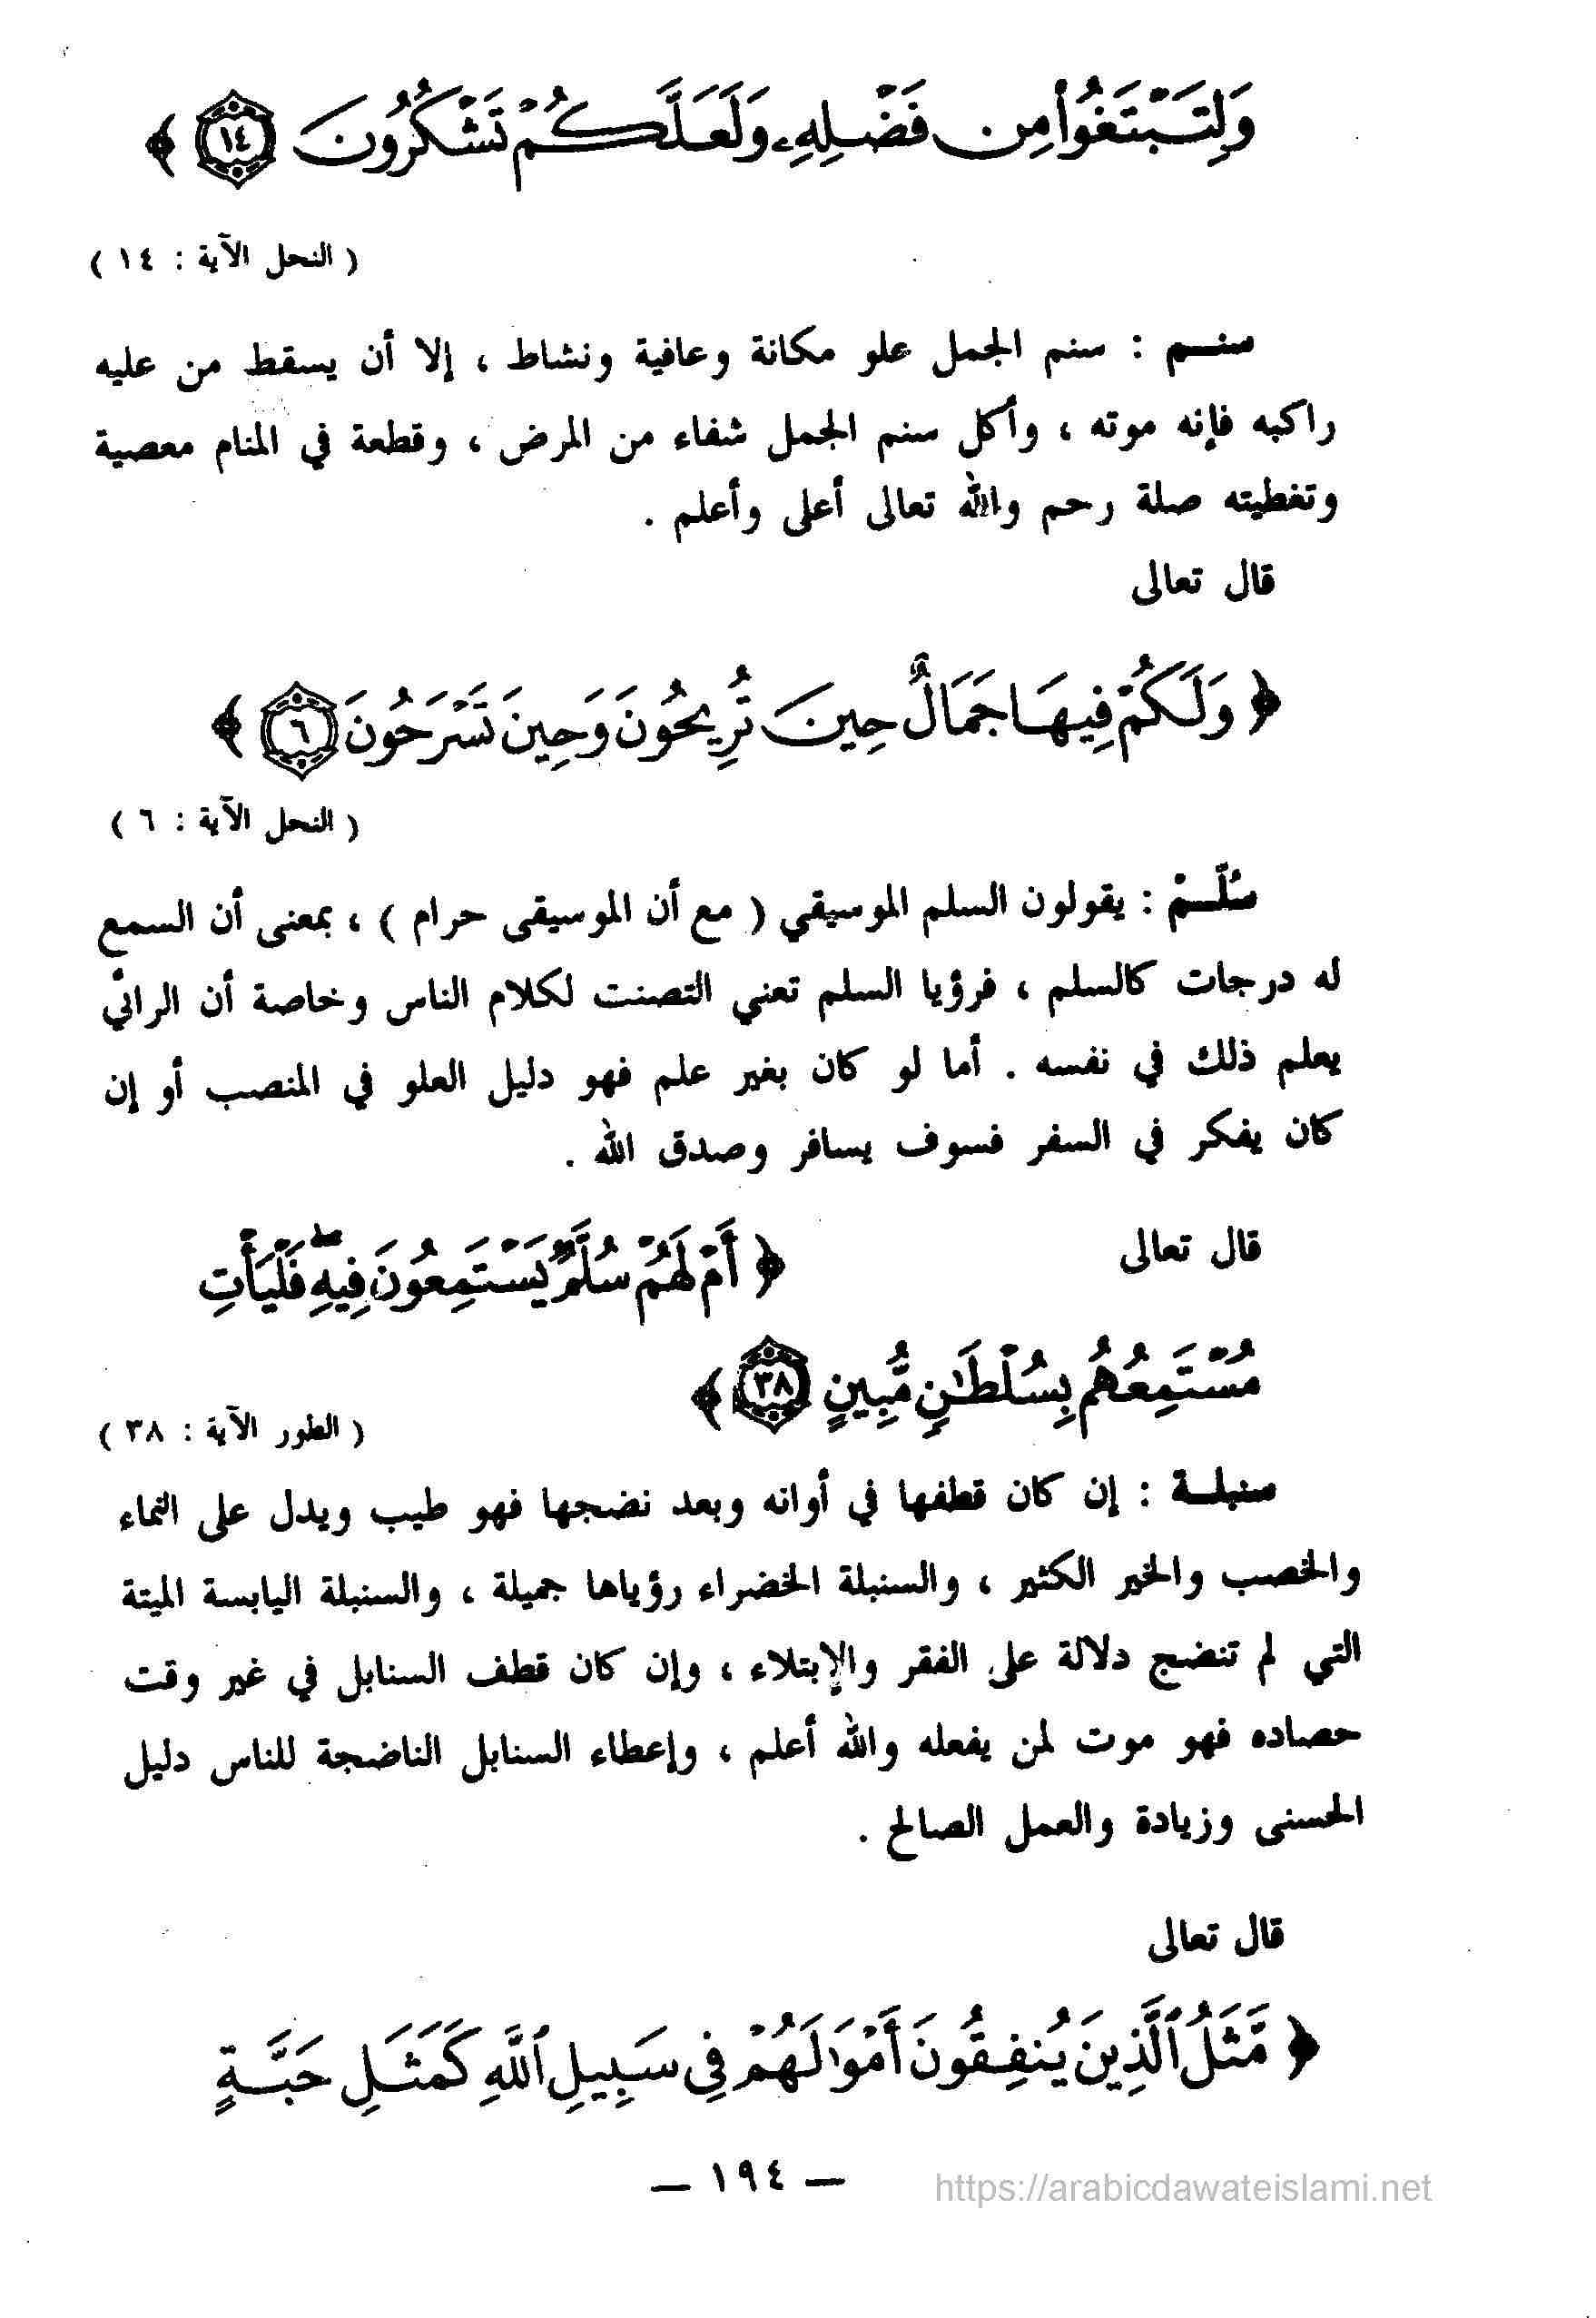 وَلِتَبْتَغُوا۟ مِن فَضْلِهِۦ وَلَعَلَّكُمْ تَشْكُرُونَ ١٤ ﴾
( النحل الآية : ١٤ )
سنـم : سنم الجمل علو مكانة وعافية ونشاط ، إلا أن يسقط من عليه
راكبه فإنه موته ، وأكل سنم الجمل شفاء من المرض ، وقطعة في المنام معصية
وتغطيته صلة رحم والله تعالى أعلى وأعلم .
قال تعالى
﴿ وَلَكُمْ فِيهَا جَمَالٌ حِينَ تُرِيحُونَ وَحِينَ تَسْرَحُونَ ٦ ﴾
( النحل الآية : ٦ )
سُلّـمْ : يقولون السلم الموسيقي ( مع أن الموسيقى حرام ) ، بمعنى أن السمع
له درجات كالسلم ، فرؤيا السلم تعني التصنت لكلام الناس وخاصة أن الرائي
يعلم ذلك في نفسه . أما لو كان بغير علم فهو دليل العلو في المنصب أو إن
كان يفكر في السفر فسوف يسافر وصدق الله .
قال تعالى ﴿ أَمْ لَهُمْ سُلَّمٌ يَسْتَمِعُونَ فِيهِ ۖ فَلْيَأْتِ
مُسْتَمِعُهُم بِسُلْطَٰنٍ مُّبِينٍ ٣٨ ﴾
( الطور الآية : ٣٨ )
سنبلـة : إن كان قطفها في أوانه وبعد نضجها فهو طيب ويدل على النماء
والخصب والخير الكثير ، والسنبلة الخضراء رؤياها جميلة ، والسنبلة اليابسة الميتة
التي لم تنضج دلالة على الفقر والإبتلاء ، وإن كان قطف السنابل في غير وقت
حصاده فهو موت لمن يفعله والله أعلم ، وإعطاء السنابل الناضجة للناس دليل
الحسنى وزيادة والعمل الصالح .
قال تعالى
﴿ مَّثَلُ ٱلَّذِينَ يُنفِقُونَ أَمْوَٰلَهُمْ فِى سَبِيلِ ٱللَّهِ كَمَثَلِ حَبَّةٍ
— ١٩٤ —
https://arabicdawateislami.net